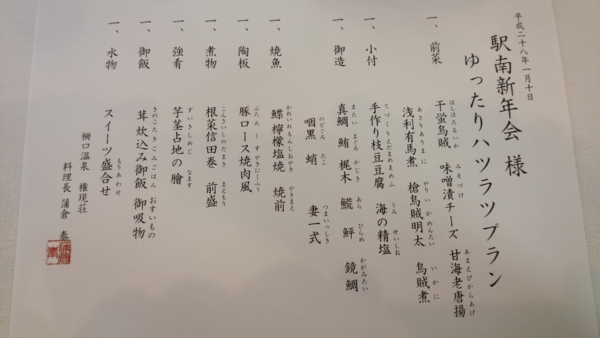 平成二十八年一月十日
駅南新年会 様
ゆったりハツラツプラン
ほしほたるいか みそづけ あまえびからあげ
一、前菜 干蛍烏賊 味噌漬チーズ 甘海老唐揚
あさりありまに やりいかめんたい いかに
浅利有馬煮 槍烏賊明太 烏賊煮
てづくりえだまめまめふ うみ せいしお
一、小付 手作り枝豆豆腐 海の精塩
またい まぐろ かじき あら ひらめ かがみたい
一、御造 真鯛 鮪 梶木 鮃 鏡鯛
のどぐろ たこ つまいっしき
咽黒 蛸 妻一式
かれいれもんしおやき やきまえ
一、焼魚 鰈檸檬塩焼 焼前
ぶたろーすやきにくふう
一、陶板 豚ロース焼肉風
こんさいしのだまき まえもり
一、煮物 根菜信田巻 前盛
ずいきしめじ なます
一、強肴 芋茎占地の膾
きのこたきこみごはん おすいもの
一、御飯 茸炊込み御飯 御吸物
もりあわせ
一、水物 スイーツ盛合せ
柵口温泉 権現荘
料理長 蒲倉 泰